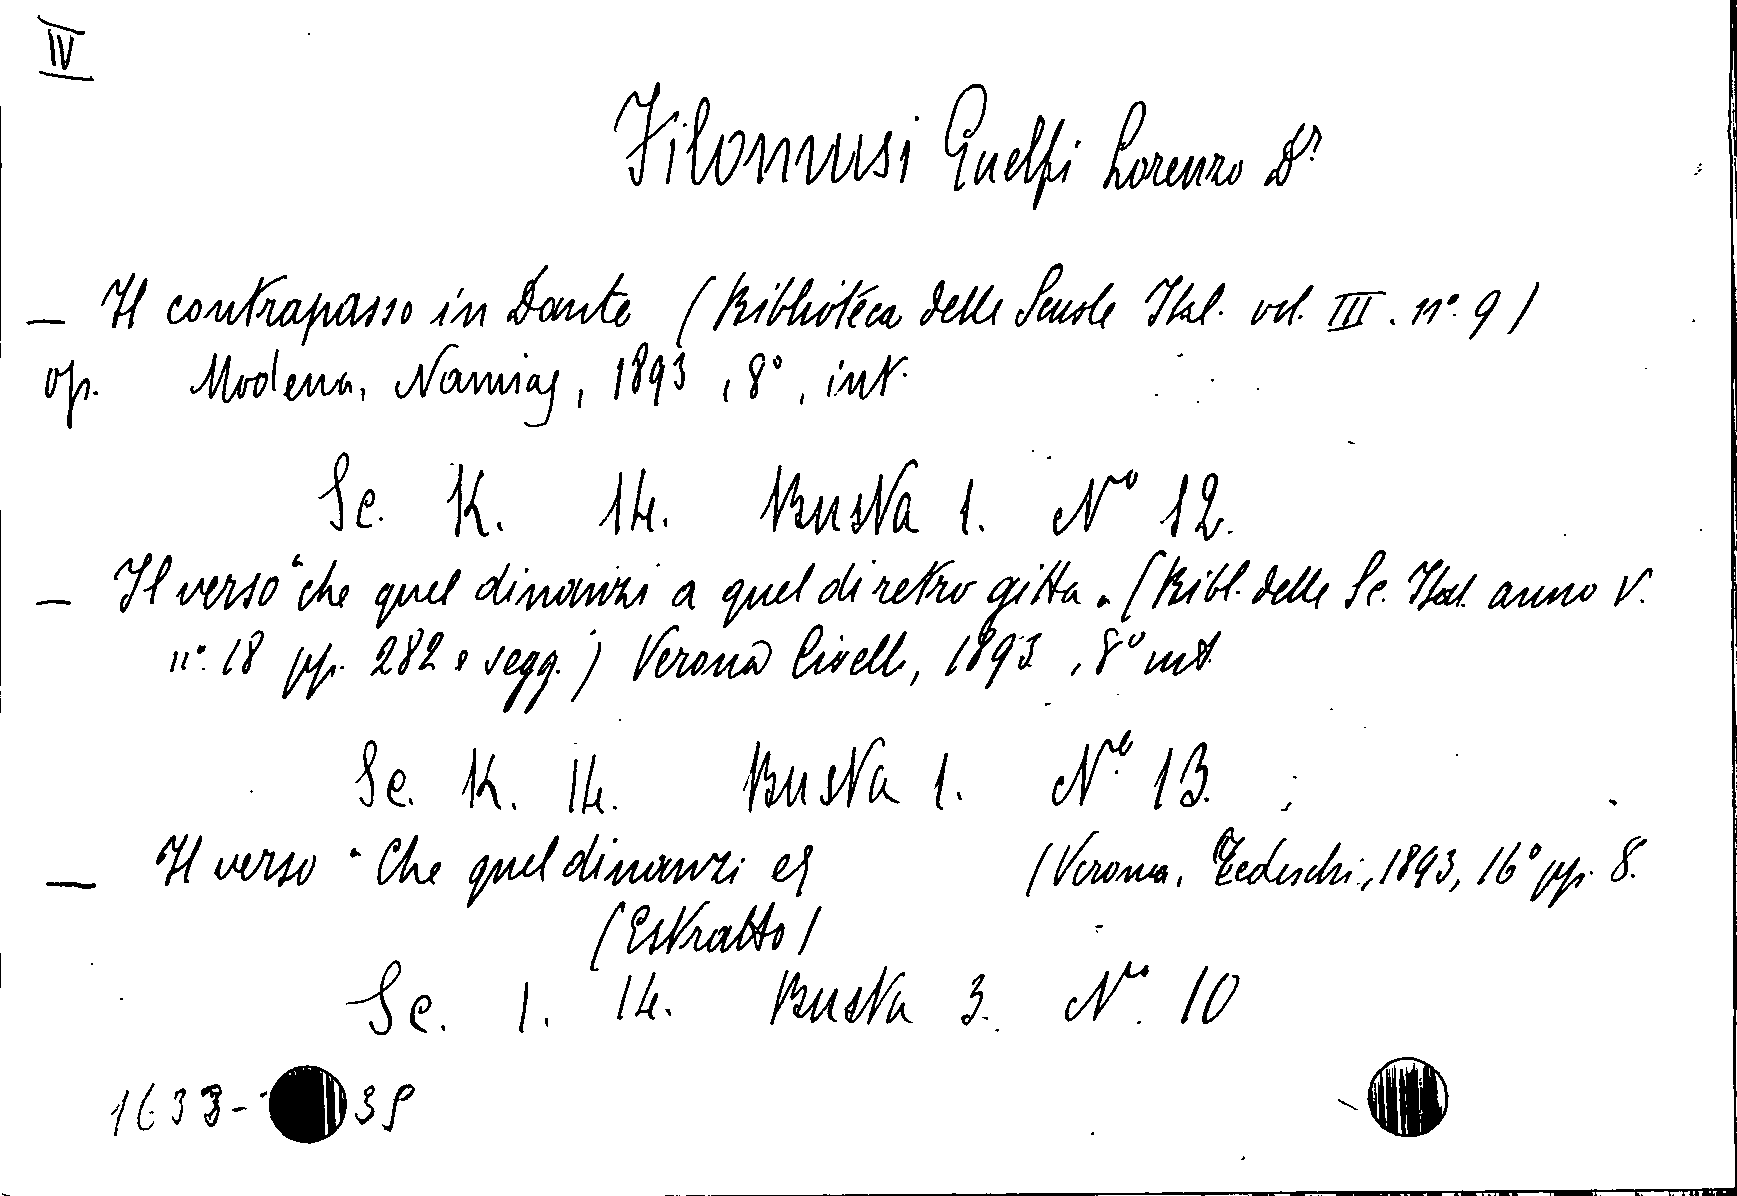 IV
Filomusi Guelfi Lorenzo Dr
— Il contrapasso in Dante (Biblioteca delle Scuole Ital. vol. III. n° 9)
op. Modena, Namias, 1893, 8°, int.
Sc. K. 14. Busta 1. N° 12.
— Il verso "che quel dinanzi a quel di retro gitta" (Bibl. delle Sc. Ital. anno V.
n° 18 pp. 282 e segg.) Verona Civelli, 1893, 8° int.
Sc. K. 14. Busta 1. N° 13.
— Il verso "Che quel dinanzi (Verona, Tedeschi, 1893, 16° pp. 8.
(Estratto)
Sc. 1. 14. Busta 3. N° 10
1633-